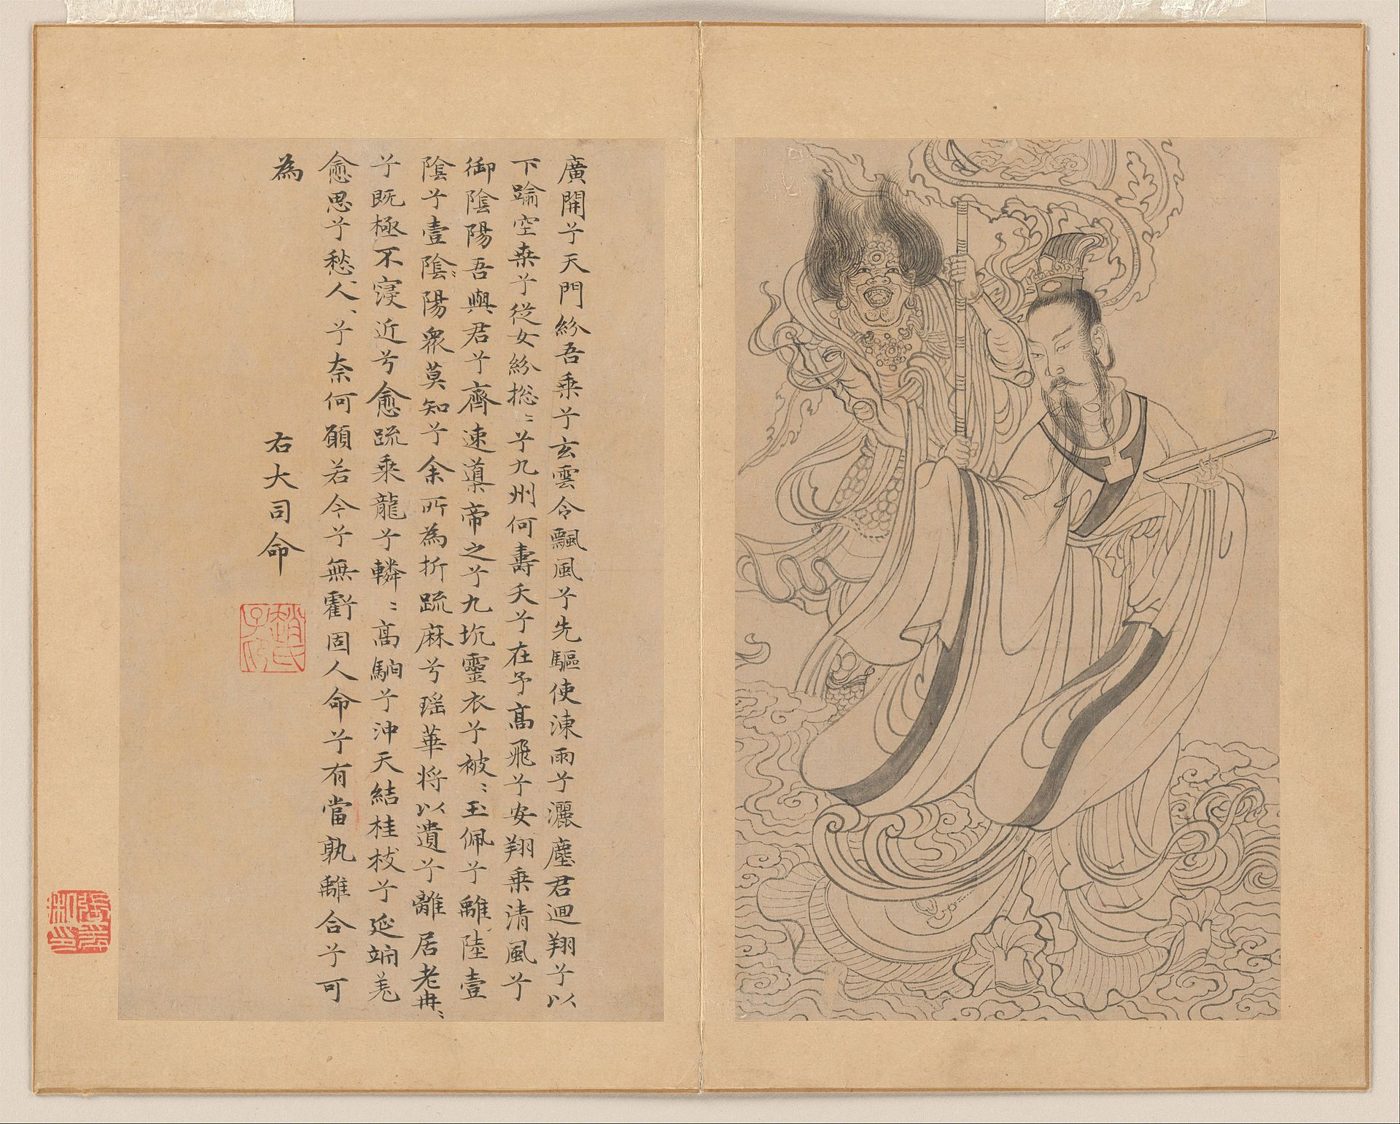 廣開兮天門紛吾乘兮玄雲令飄風兮先驅使涷雨兮灑塵君迴翔兮以
下踰空桒兮從女紛揔〻兮九州何壽夭兮在予高飛兮安翔乘清風兮
御陰陽吾與君兮齊速導帝之兮九坑靈衣兮被〻玉佩兮離陸壹
陰兮壹陰〻陽衆莫知兮余所為折疏麻兮瑶華将以遺兮離居老冉〻
兮既極不寖近兮愈疏乘龍兮轔〻高駧兮沖天結桂枝兮延竚羌
愈思兮愁人〻兮奈何願若今兮無虧固人命兮有當孰離合兮可
為
右大司命
趙氏子昂